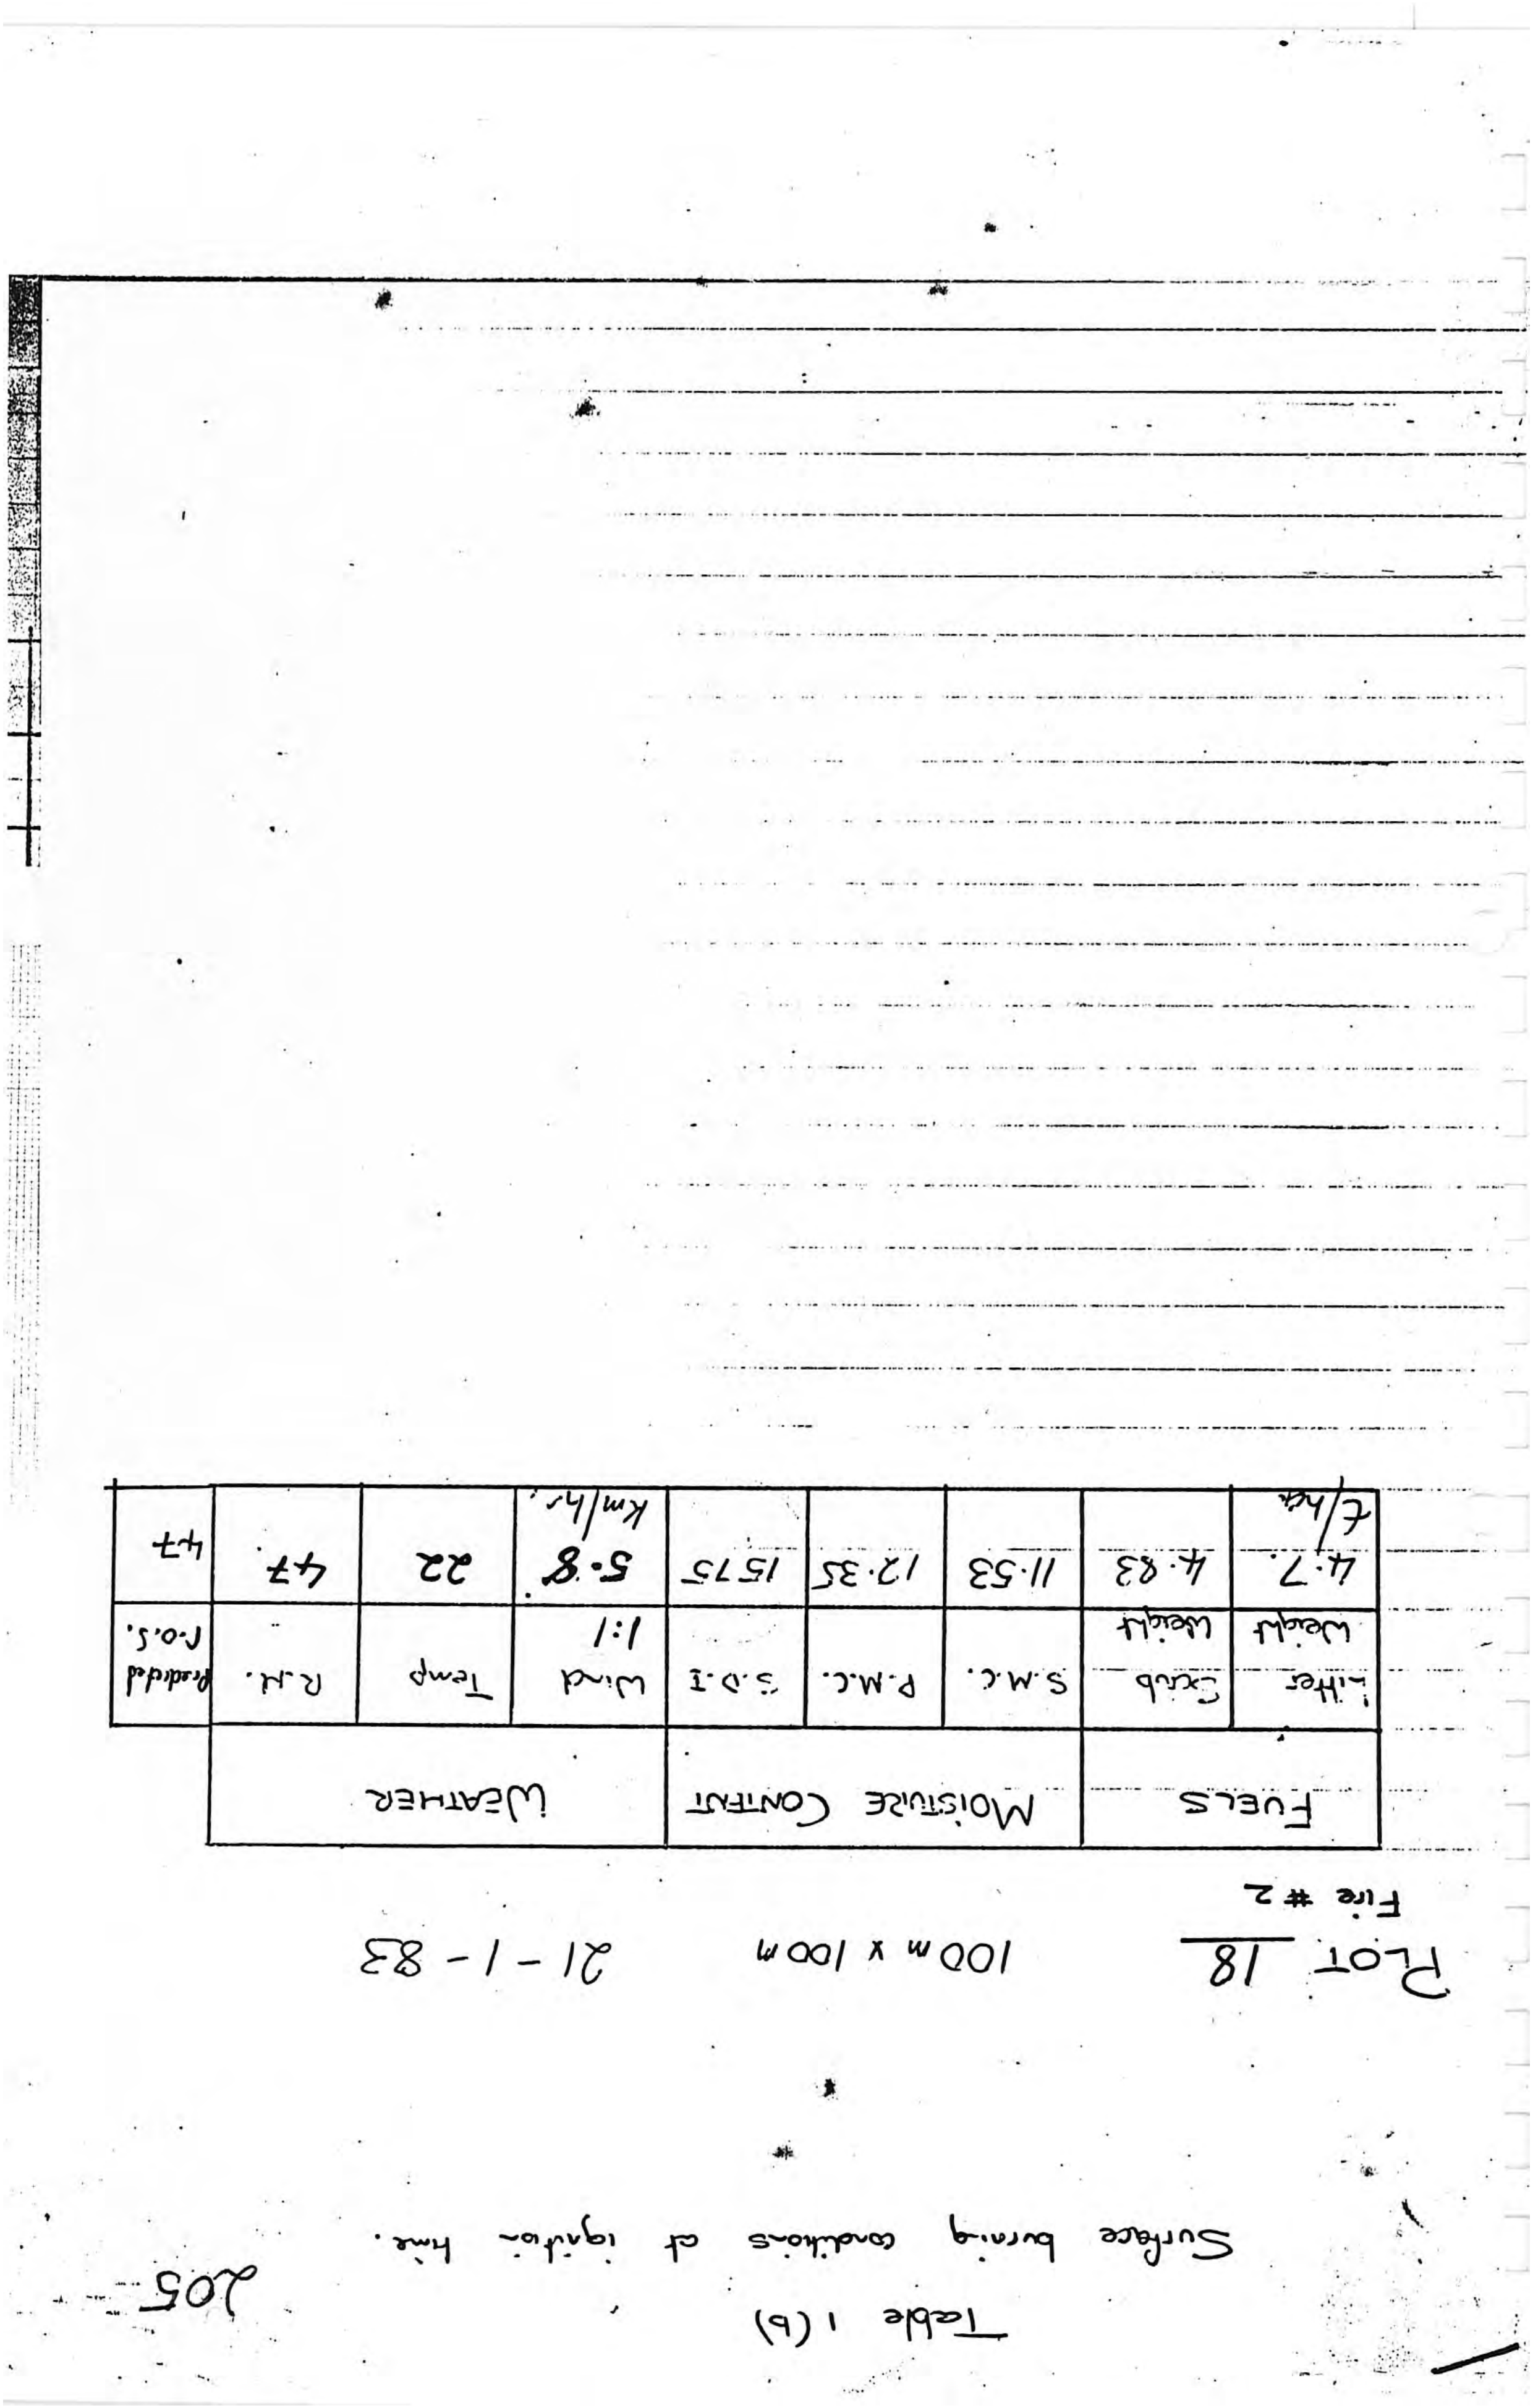 Table 1 (b)
205
Surface burning conditions at ignition time.
PLOT 18 100m x 100m 21-1-83
Fire #2
FUELS MOISTURE CONTENT WEATHER
Litter Weight Scrub Weight S.M.C. P.M.C. S.D.I Wind 1:1 Temp R.H. Predicted r.o.s.
4.7 t/ha 4.83 11.53 12.35 1575 5.8 Km/hr. 22 47 47